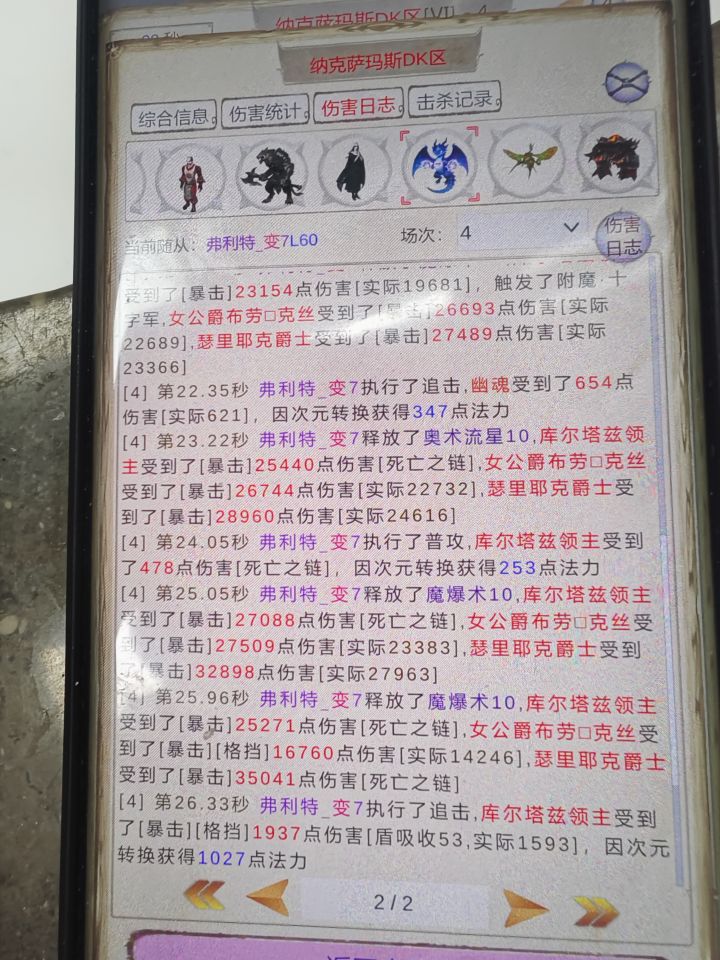 纳克萨玛斯DK区[VI]
纳克萨玛斯DK区
综合信息
伤害统计
伤害日志
击杀记录
当前随从：弗利特_变7L60
场次：
4
伤害
日志
受到了[暴击]23154点伤害[实际19681]，触发了附魔·十
字军,女公爵布劳□克丝受到了[暴击]26693点伤害[实际
22689],瑟里耶克爵士受到了[暴击]27489点伤害[实际
23366]
[4] 第22.35秒 弗利特_变7执行了追击,幽魂受到了654点
伤害[实际621]，因次元转换获得347点法力
[4] 第23.22秒 弗利特_变7释放了奥术流星10,库尔塔兹领
主受到了[暴击]25440点伤害[死亡之链],女公爵布劳□克丝
受到了[暴击]26744点伤害[实际22732],瑟里耶克爵士受
到了[暴击]28960点伤害[实际24616]
[4] 第24.05秒 弗利特_变7执行了普攻,库尔塔兹领主受到
了478点伤害[死亡之链]，因次元转换获得253点法力
[4] 第25.05秒 弗利特_变7释放了魔爆术10,库尔塔兹领主
受到了[暴击]27088点伤害[死亡之链],女公爵布劳□克丝受
到了[暴击]27509点伤害[实际23383],瑟里耶克爵士受到
了[暴击]32898点伤害[实际27963]
[4] 第25.96秒 弗利特_变7释放了魔爆术10,库尔塔兹领主
受到了[暴击]25271点伤害[死亡之链],女公爵布劳□克丝受
到了[暴击][格挡]16760点伤害[实际14246],瑟里耶克爵士
受到了[暴击]35041点伤害[死亡之链]
[4] 第26.33秒 弗利特_变7执行了追击,库尔塔兹领主受到
了[暴击][格挡]1937点伤害[盾吸收53,实际1593]，因次元
转换获得1027点法力
2/2